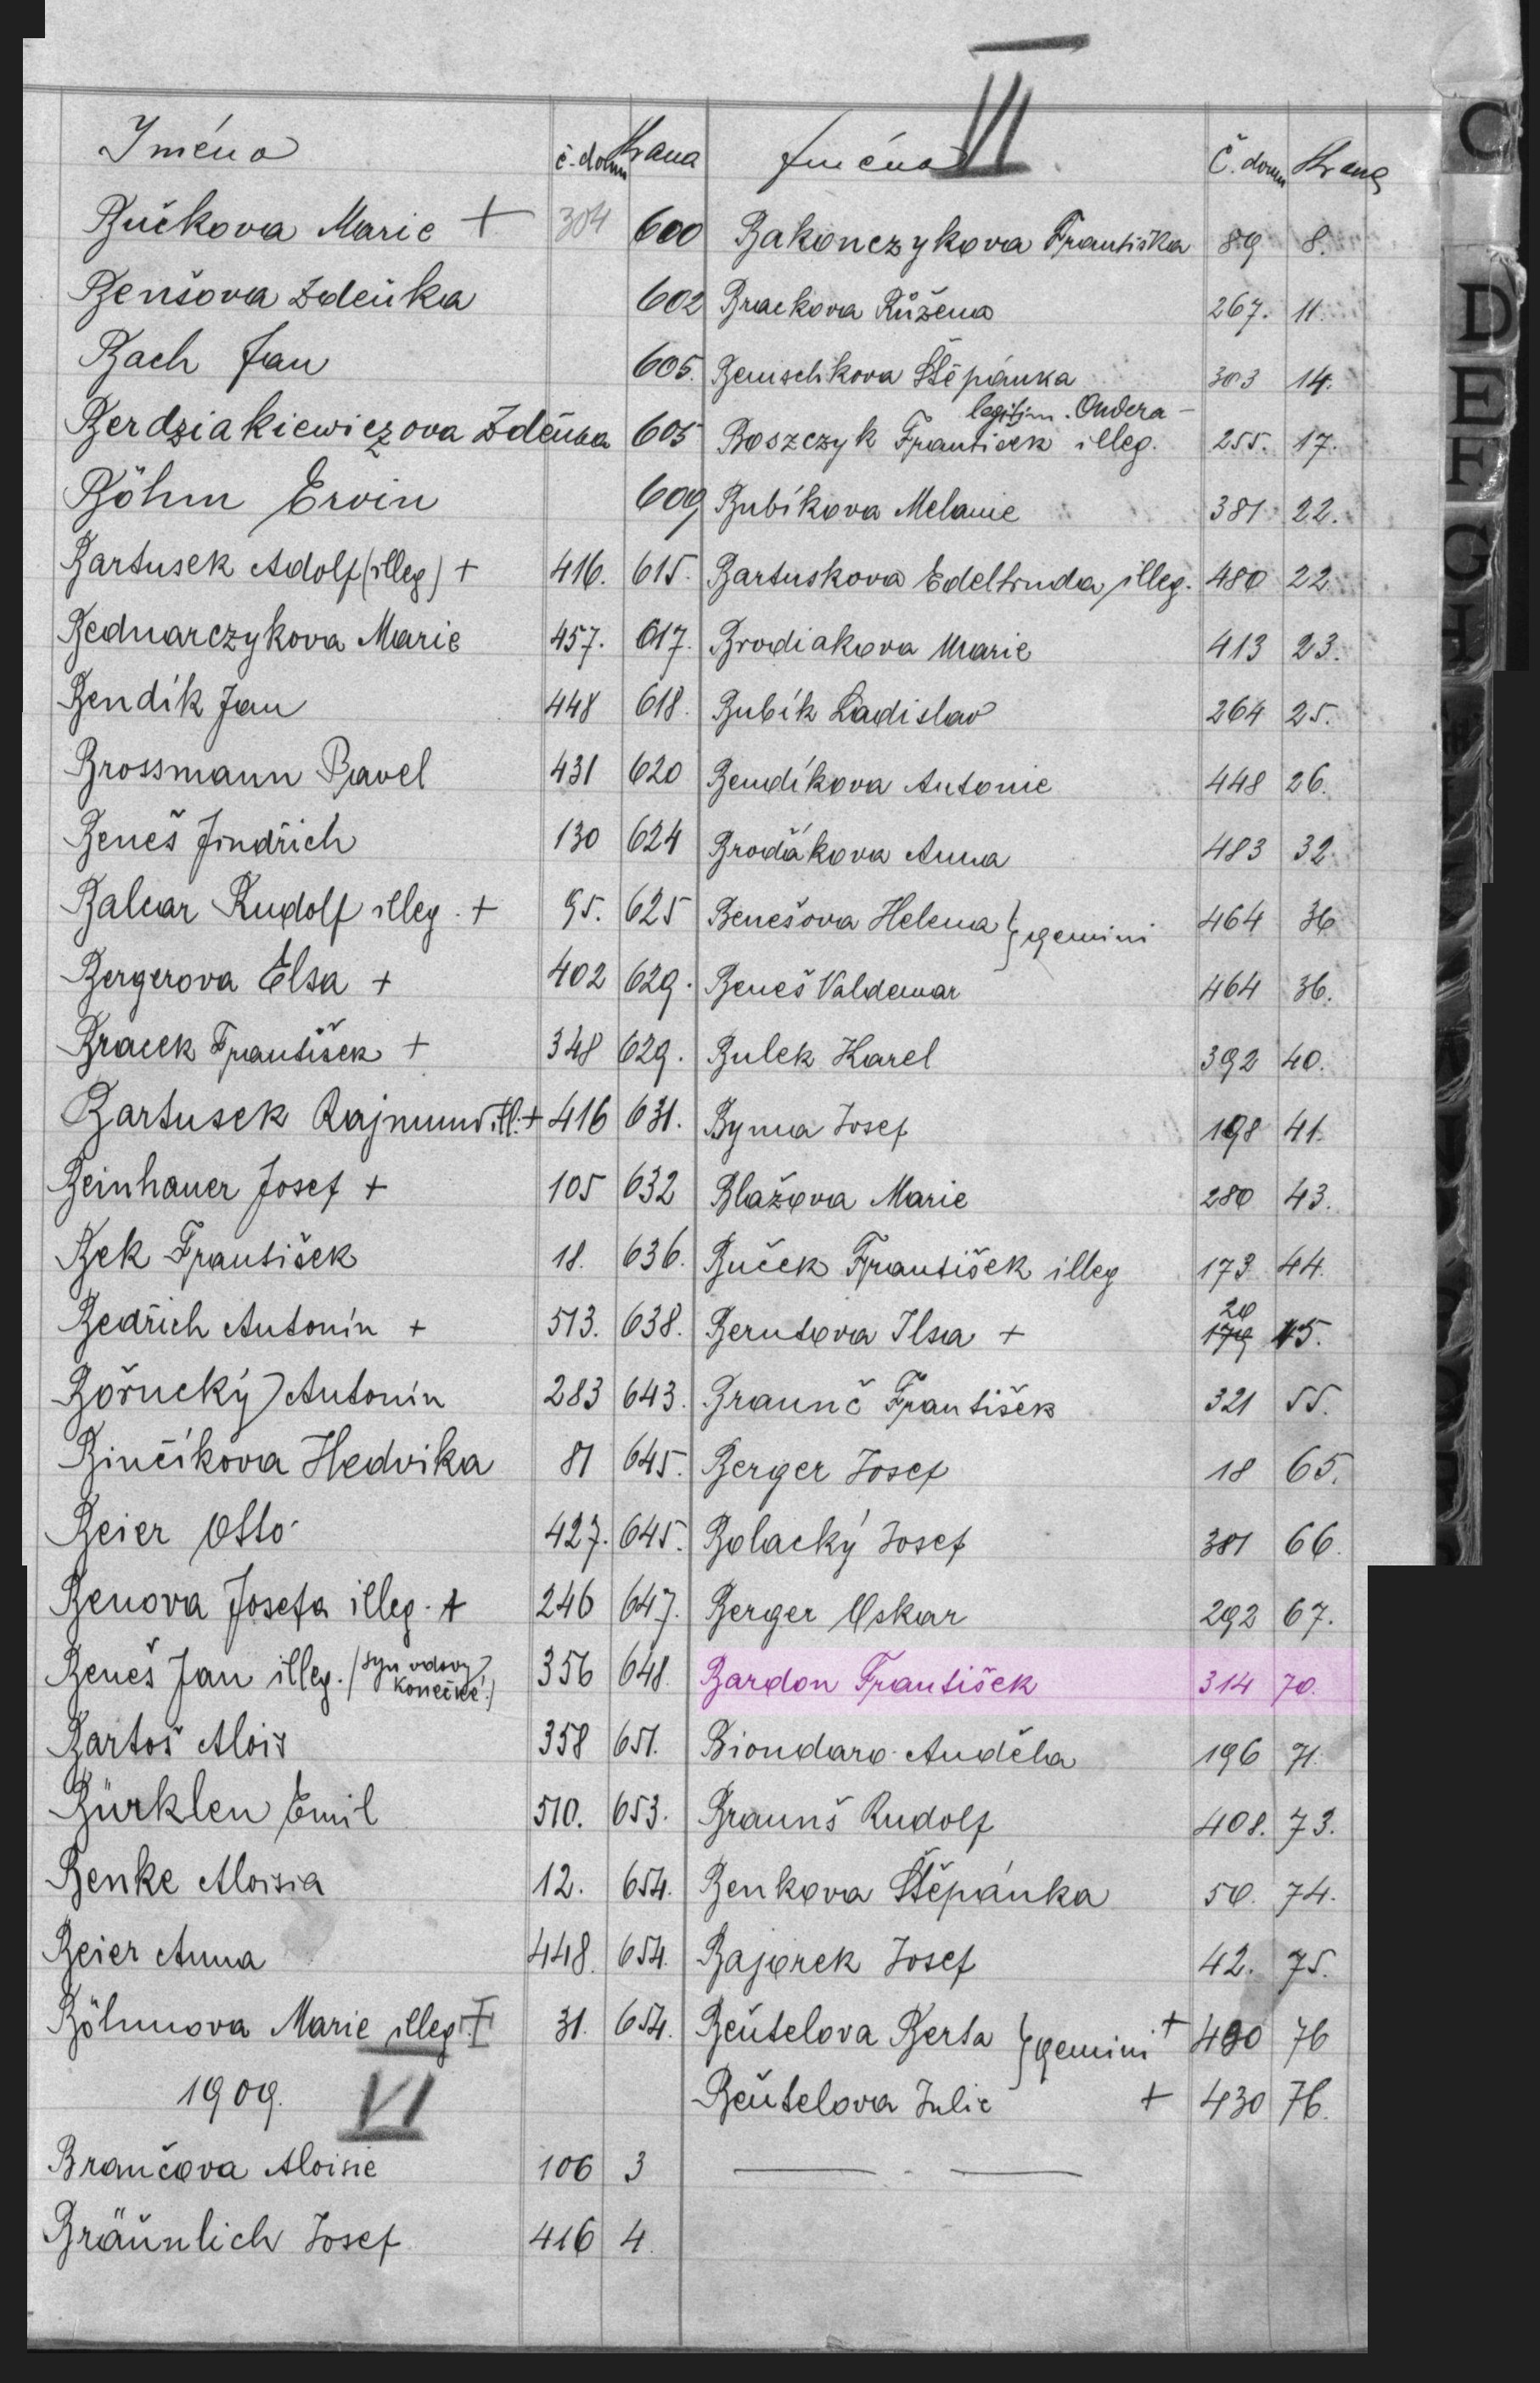 VI
Jméno č. domu Strana
Bučkova Marie + 304 600
Benšova Zdeňka 602
Bach Jan 605.
Berdziakiewiczova Zdeňka 605
Böhm Ervin 609
Bartusek Adolf (illeg) + 416. 615.
Bednarczykova Marie 457. 617.
Bendík Jan 448 618.
Brossmann Pavel 431 620
Beneš Jindřich 130 624
Balcar Rudolf illeg. + 95. 625
Bergerova Elsa + 402 629.
Bracek František + 348 629.
Bartusek Rajmund ill. + 416 631.
Beinhauer Josef + 105 632
Bek František 18. 636.
Bedřich Antonín + 513. 638.
Bořucký Antonín 283 643.
Binčíkova Hedvika 81 645.
Beier Otto 427. 645.
Benova Josefa illeg. + 246 647.
Beneš Jan illeg. (syn vdovy Konečné) 356 648.
Bartoš Alois 358 651.
Bürklen Emil 510. 653.
Benke Aloisia 12. 654.
Beier Anna 448. 654.
Böhmova Marie illeg. + 31. 654.
1909. VI
Brančova Aloisie 106 3
Bräunlich Josef 416 4.
Jména Č. domu Strana
Bakonczykova Františka 89 8.
Brackova Růžena 267. 11.
Bemschikova Štěpánka 303 14.
legitim. Ondera -
Boszczyk Frantisek illeg. 255. 17.
Bubíkova Melanie 381 22.
Bartuskova Edeltruda illeg. 480 22.
Brodiakova Marie 413 23.
Bubík Ladislav 264 25.
Bendíkova Antonie 448 26.
Brodákova Anna 483 32.
Benešova Helena } gemini 464 36
Beneš Valdemar 464 36.
Bulek Karel 392 40.
Byma Josef 198 41.
Blažova Marie 280 43.
Buček František illeg 173 44.
20
Berntova Ilsa + 179 45.
Braunč František 321 55.
Berger Josef 18 65.
Bolacký Josef 381 66.
Berger Oskar 292 67.
Bardon František 314 70.
Biondaro Anděla 196 71.
Braunš Rudolf 408. 73.
Benkova Štěpánka 50. 74.
Bajorek Josef 42. 75.
Beutelova Berta } gemini + 430 76
Beutelova Julie + 430 76.
C
D
E
F
G
H